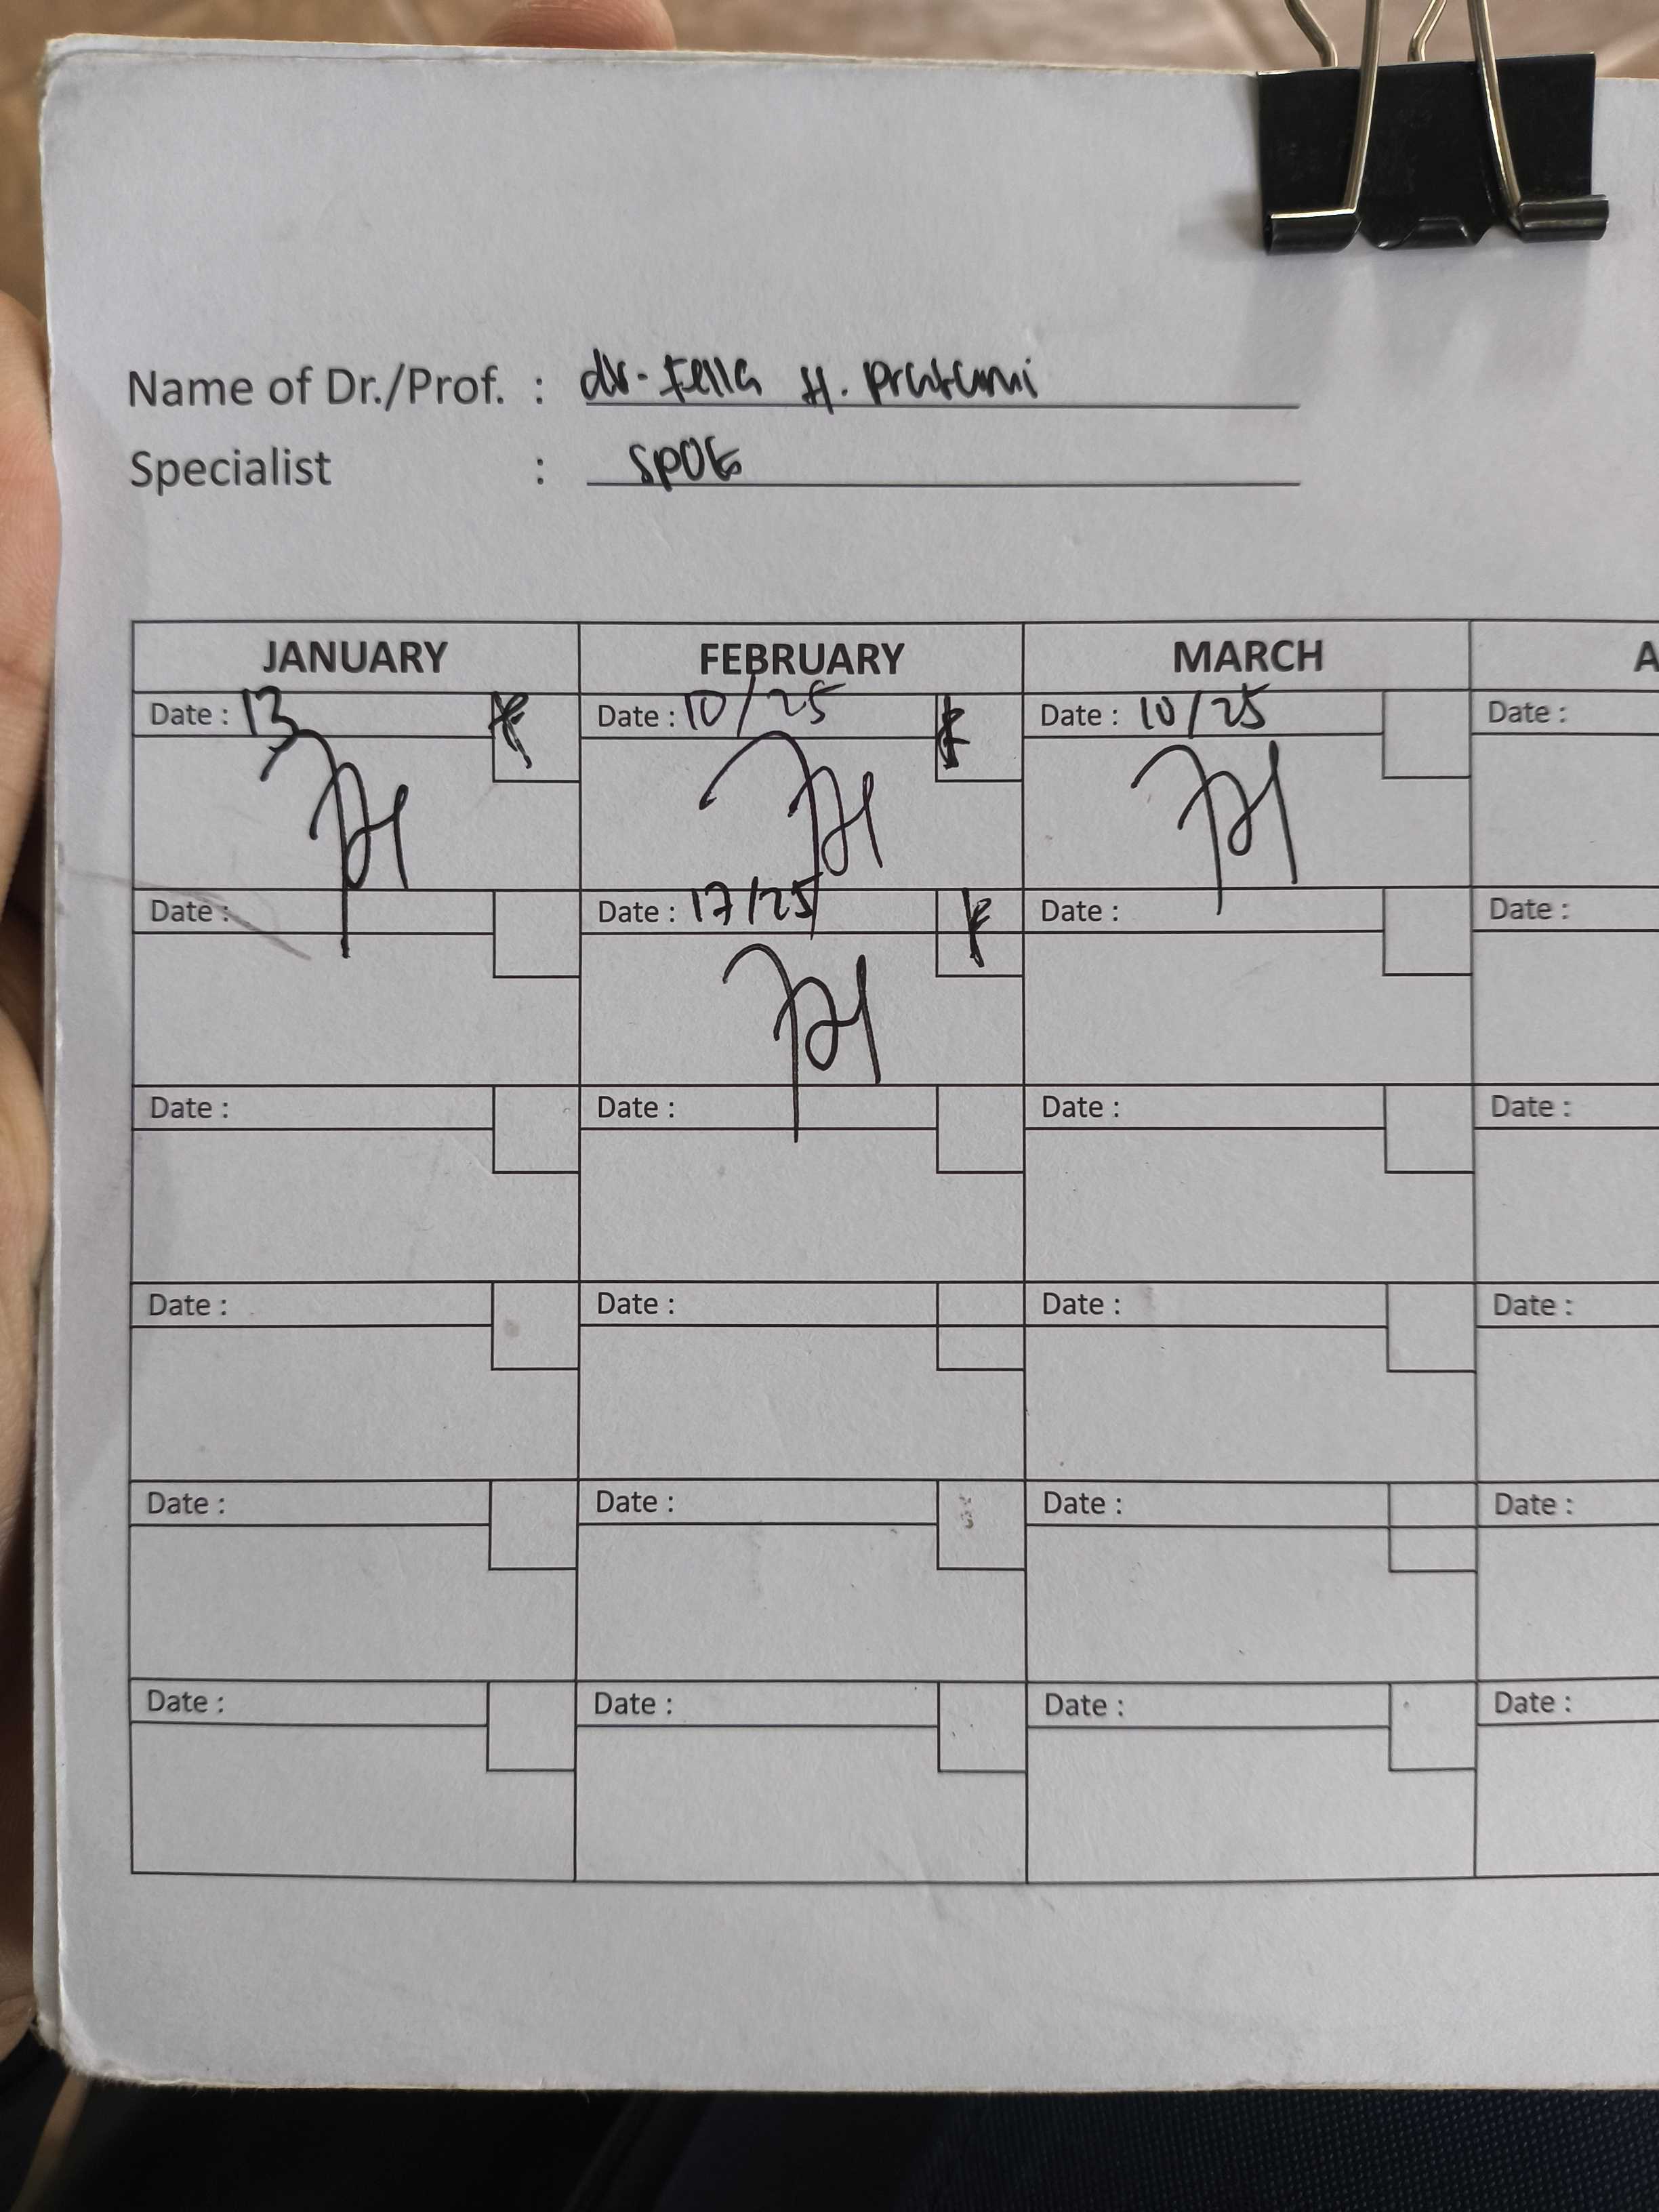 Name of Dr./Prof. : dr. Fella H. Pratami
Specialist : SPOG
JANUARY FEBRUARY MARCH A
Date : 13 Date : 10/25 Date : 10/25 Date :
Date : Date : 17/25 Date : Date :
Date : Date : Date : Date :
Date : Date : Date : Date :
Date : Date : Date : Date :
Date : Date : Date : Date :